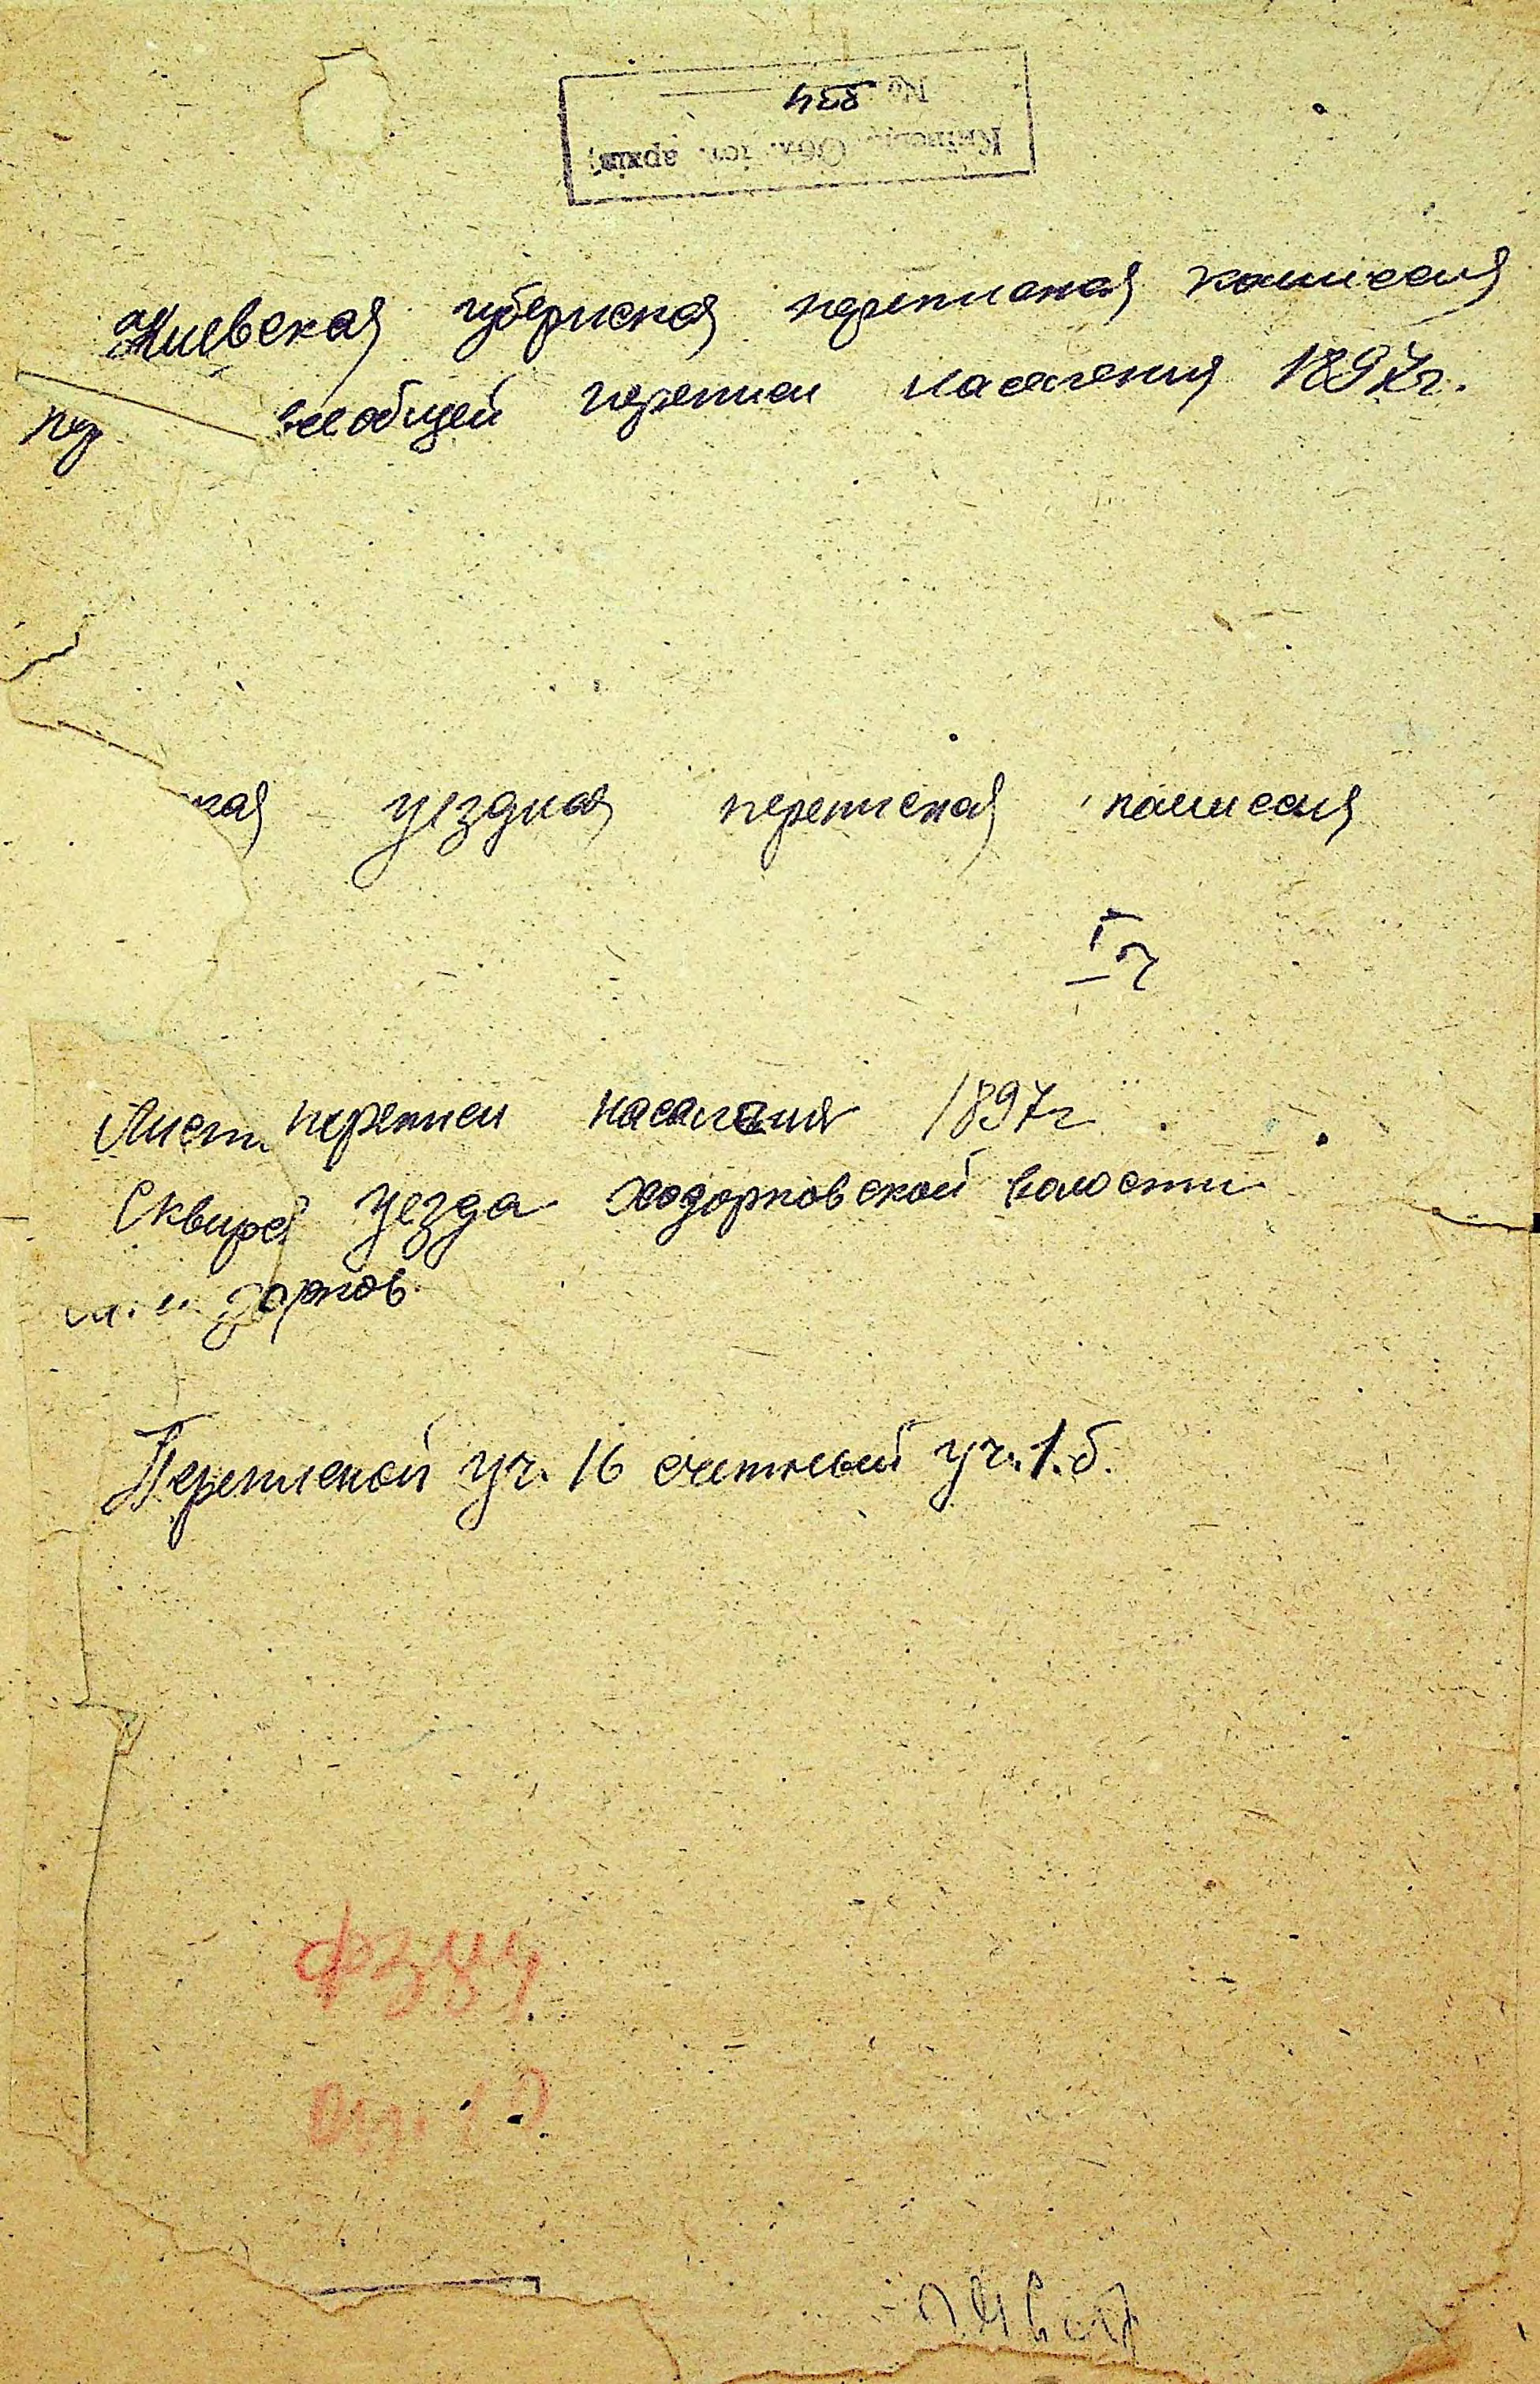 № 834
Київськ. Обл. іст. архів
Киевская губернская переписная комиссия
всеобщей переписи населения 1897г.
кая уездная переписная комиссия
I ч
Лист переписи населения 1897г
Сквирс уезда Ходорковской волости
дорков.
Переписной уч. 16 счетный уч. 1.б.